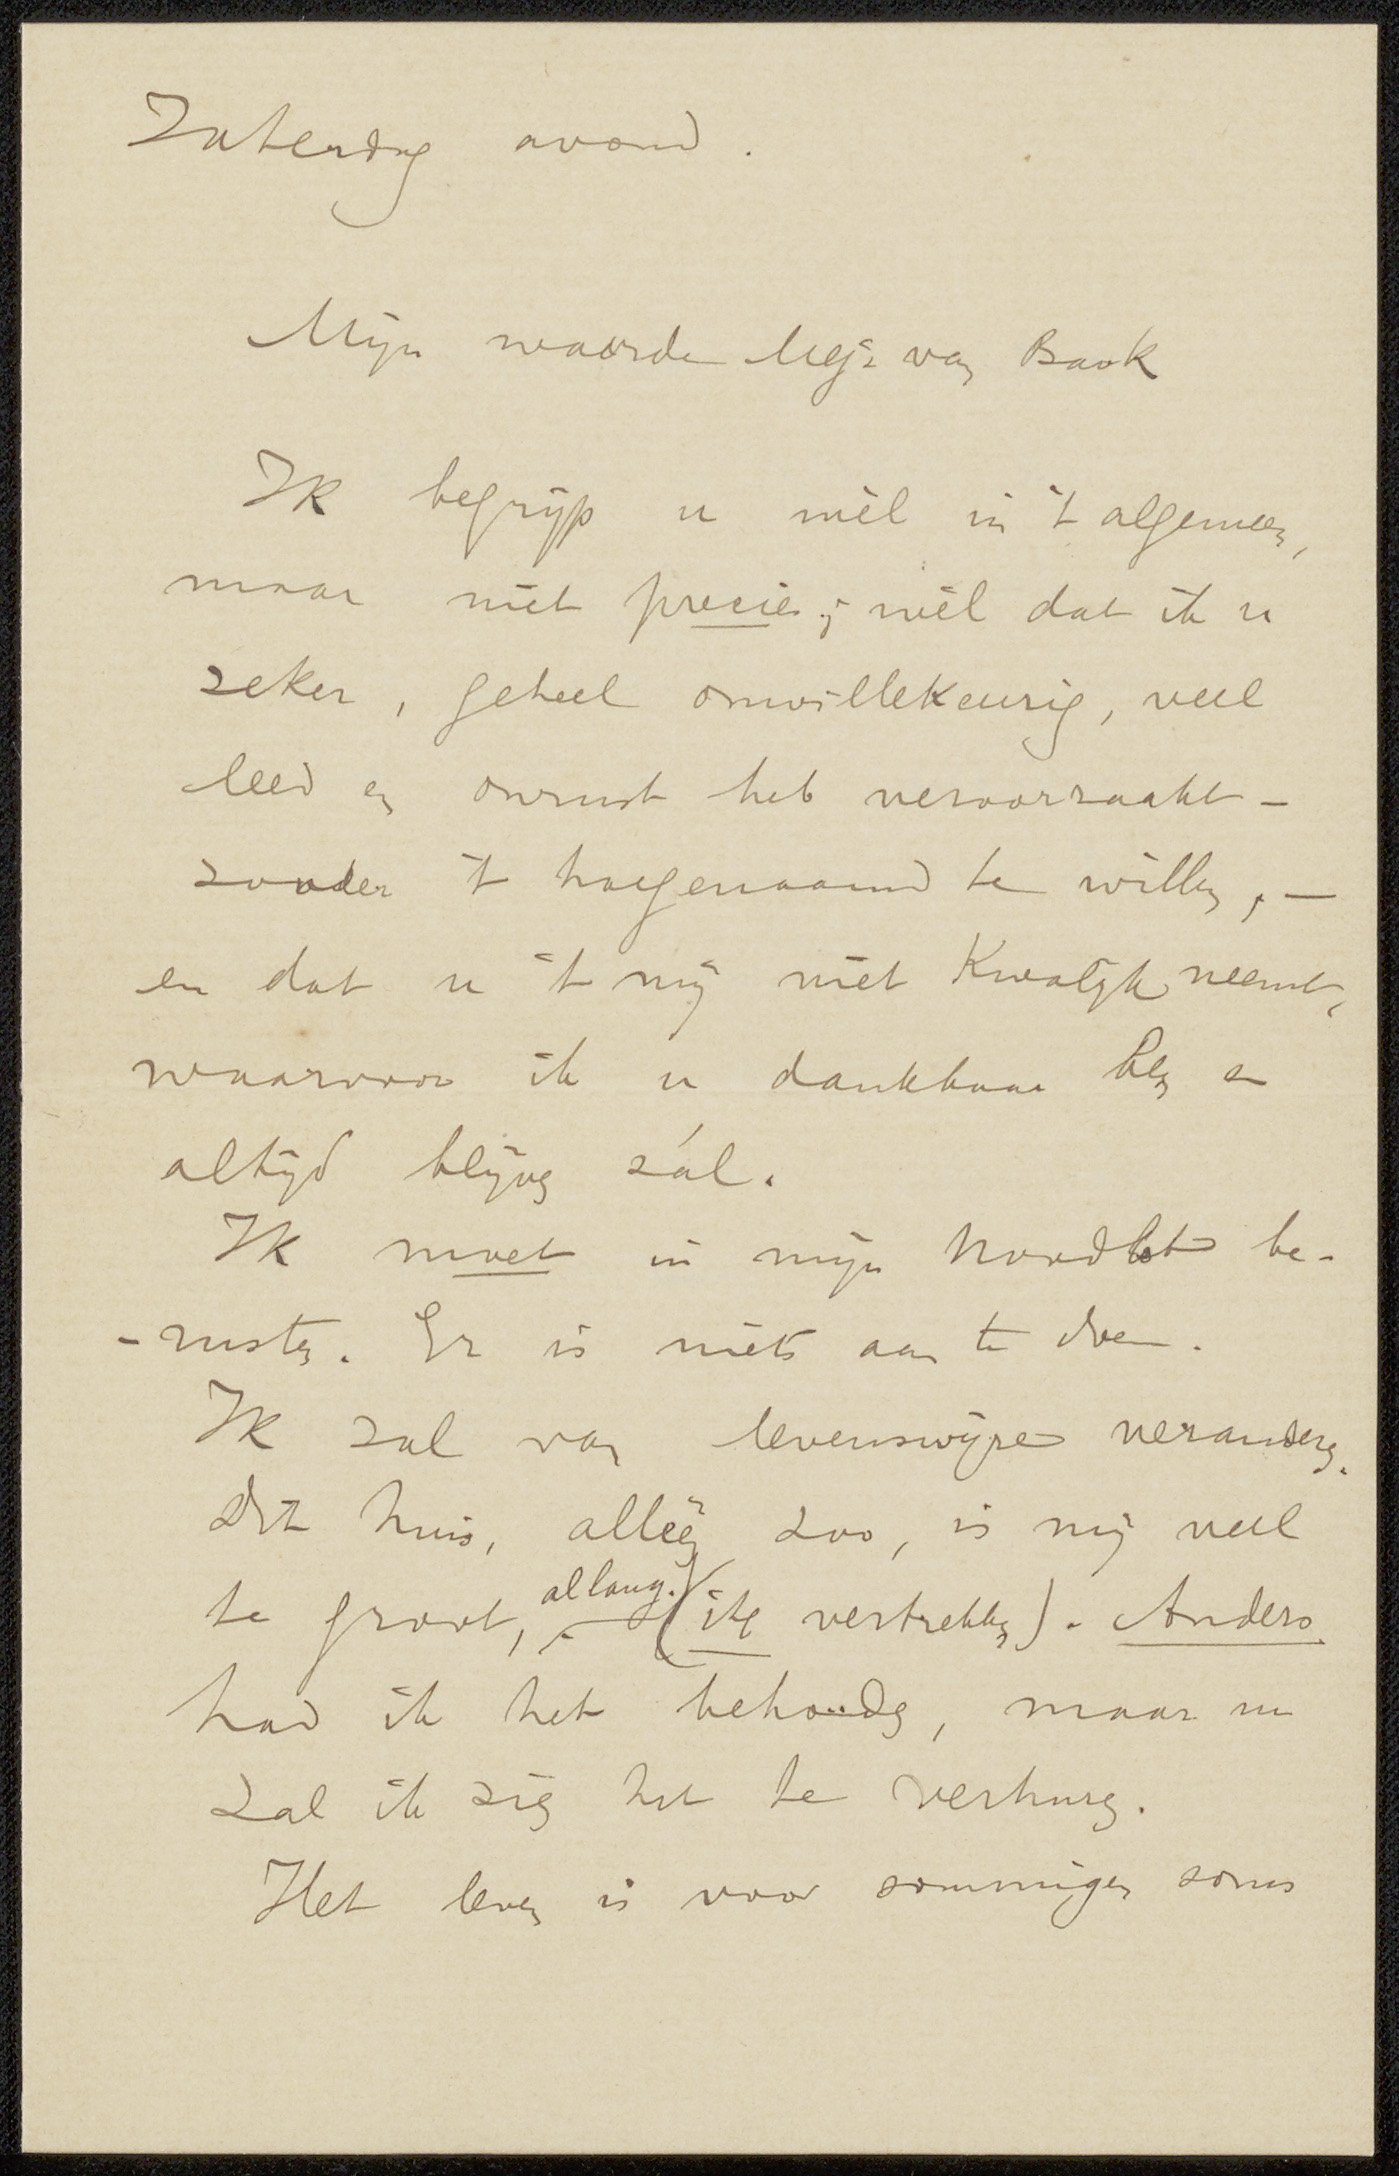 Zaterdag avond.
Mijn waarde Mejr van Book
Ik begrijp u wèl in 't algemeen,
maar niet precies; wèl dat ik u
zeker, geheel onwillekeurig, veel
leed en onrust heb veroorzaakt -
zonder 't hoegenaamd te willen, -
en dat u 't mij niet kwalijk neemt,
waarvoor ik u dankbaar ben en
altijd blijven zál.
Ik moet in mijn noodlot be-
-rusten. Er is niets aan te doen.
Ik zal van levenswijze veranderen.
Dit huis, alleen zoo, is mij veel
te groot, allang. (11 vertrekken). Anders
had ik het behouden, maar nu
zal ik zien het te verhuren.
Het leven is voor sommigen soms